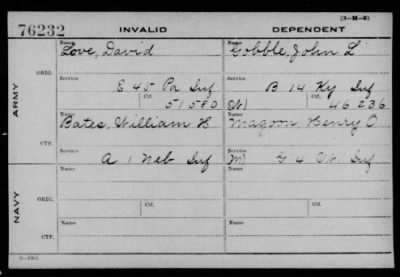 (3-11-2)
76232 INVALID DEPENDENT
ARMY
ORIG.
Name Love, David
Name Gobble, John L
Service E 45 Pa Inf
Service B 14 Ky Inf
Ctf. 51580
(W) Ctf. 46236
CTF.
Name Bates, William H
Name Magoon, Henry O
Service A 1 Neb Inf
Service (M) G 4 Vt. Inf
NAVY
ORIG.
Name
Ctf.
Name
Ctf.
CTF.
Name
Name